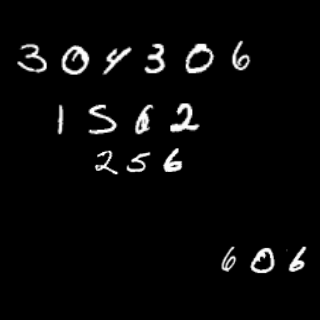 304306
1562
256
606